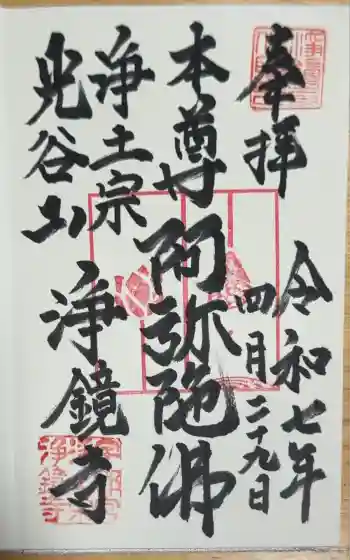 奉拝
令和七年
四月二十九日
本尊阿弥陀佛
浄土宗
光谷山
浄鏡寺